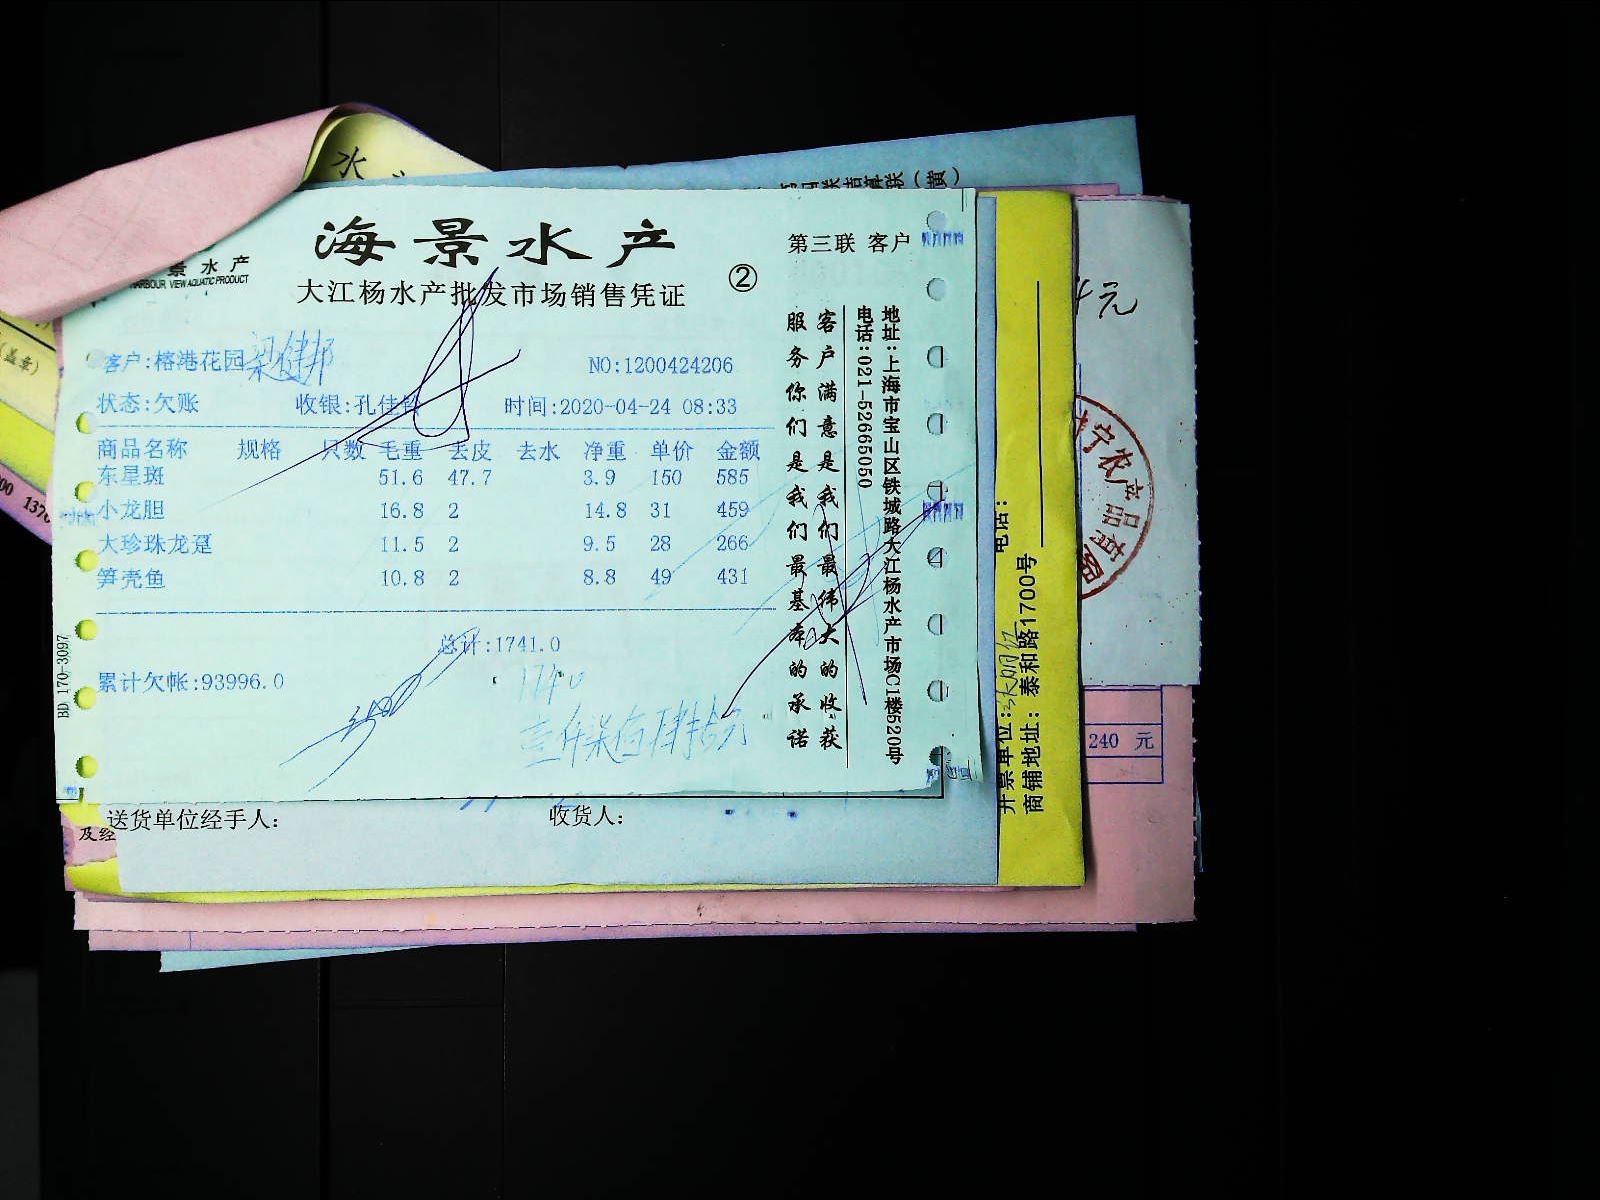 水
海景水产
景水产
HARBOUR VIEW AQUATIC PRODUCT
大江杨水产批发市场销售凭证
②
第三联 客户
客户:榕港花园
NO:1200424206
状态:欠账 收银:孔佳 时间:2020-04-24 08:33
商品名称 规格 只数 毛重 去皮 去水 净重 单价 金额
东星斑 51.6 47.7 3.9 150 585
小龙胆 16.8 2 14.8 31 459
大珍珠龙趸 11.5 2 9.5 28 266
笋壳鱼 10.8 2 8.8 49 431
总计:1741.0
累计欠帐:93996.0
1740
地址:上海市宝山区铁城路大江杨水产市场C1楼520号
电话:021-52665050
客户满意是我们最伟大的收获
服务你们是我们最基本的承诺
BD 170-3097
送货单位经手人:
收货人:
及经
(盖章)
电话:
开票单位:
商铺地址: 泰和路1700号
元
宁农产品有限
240 元